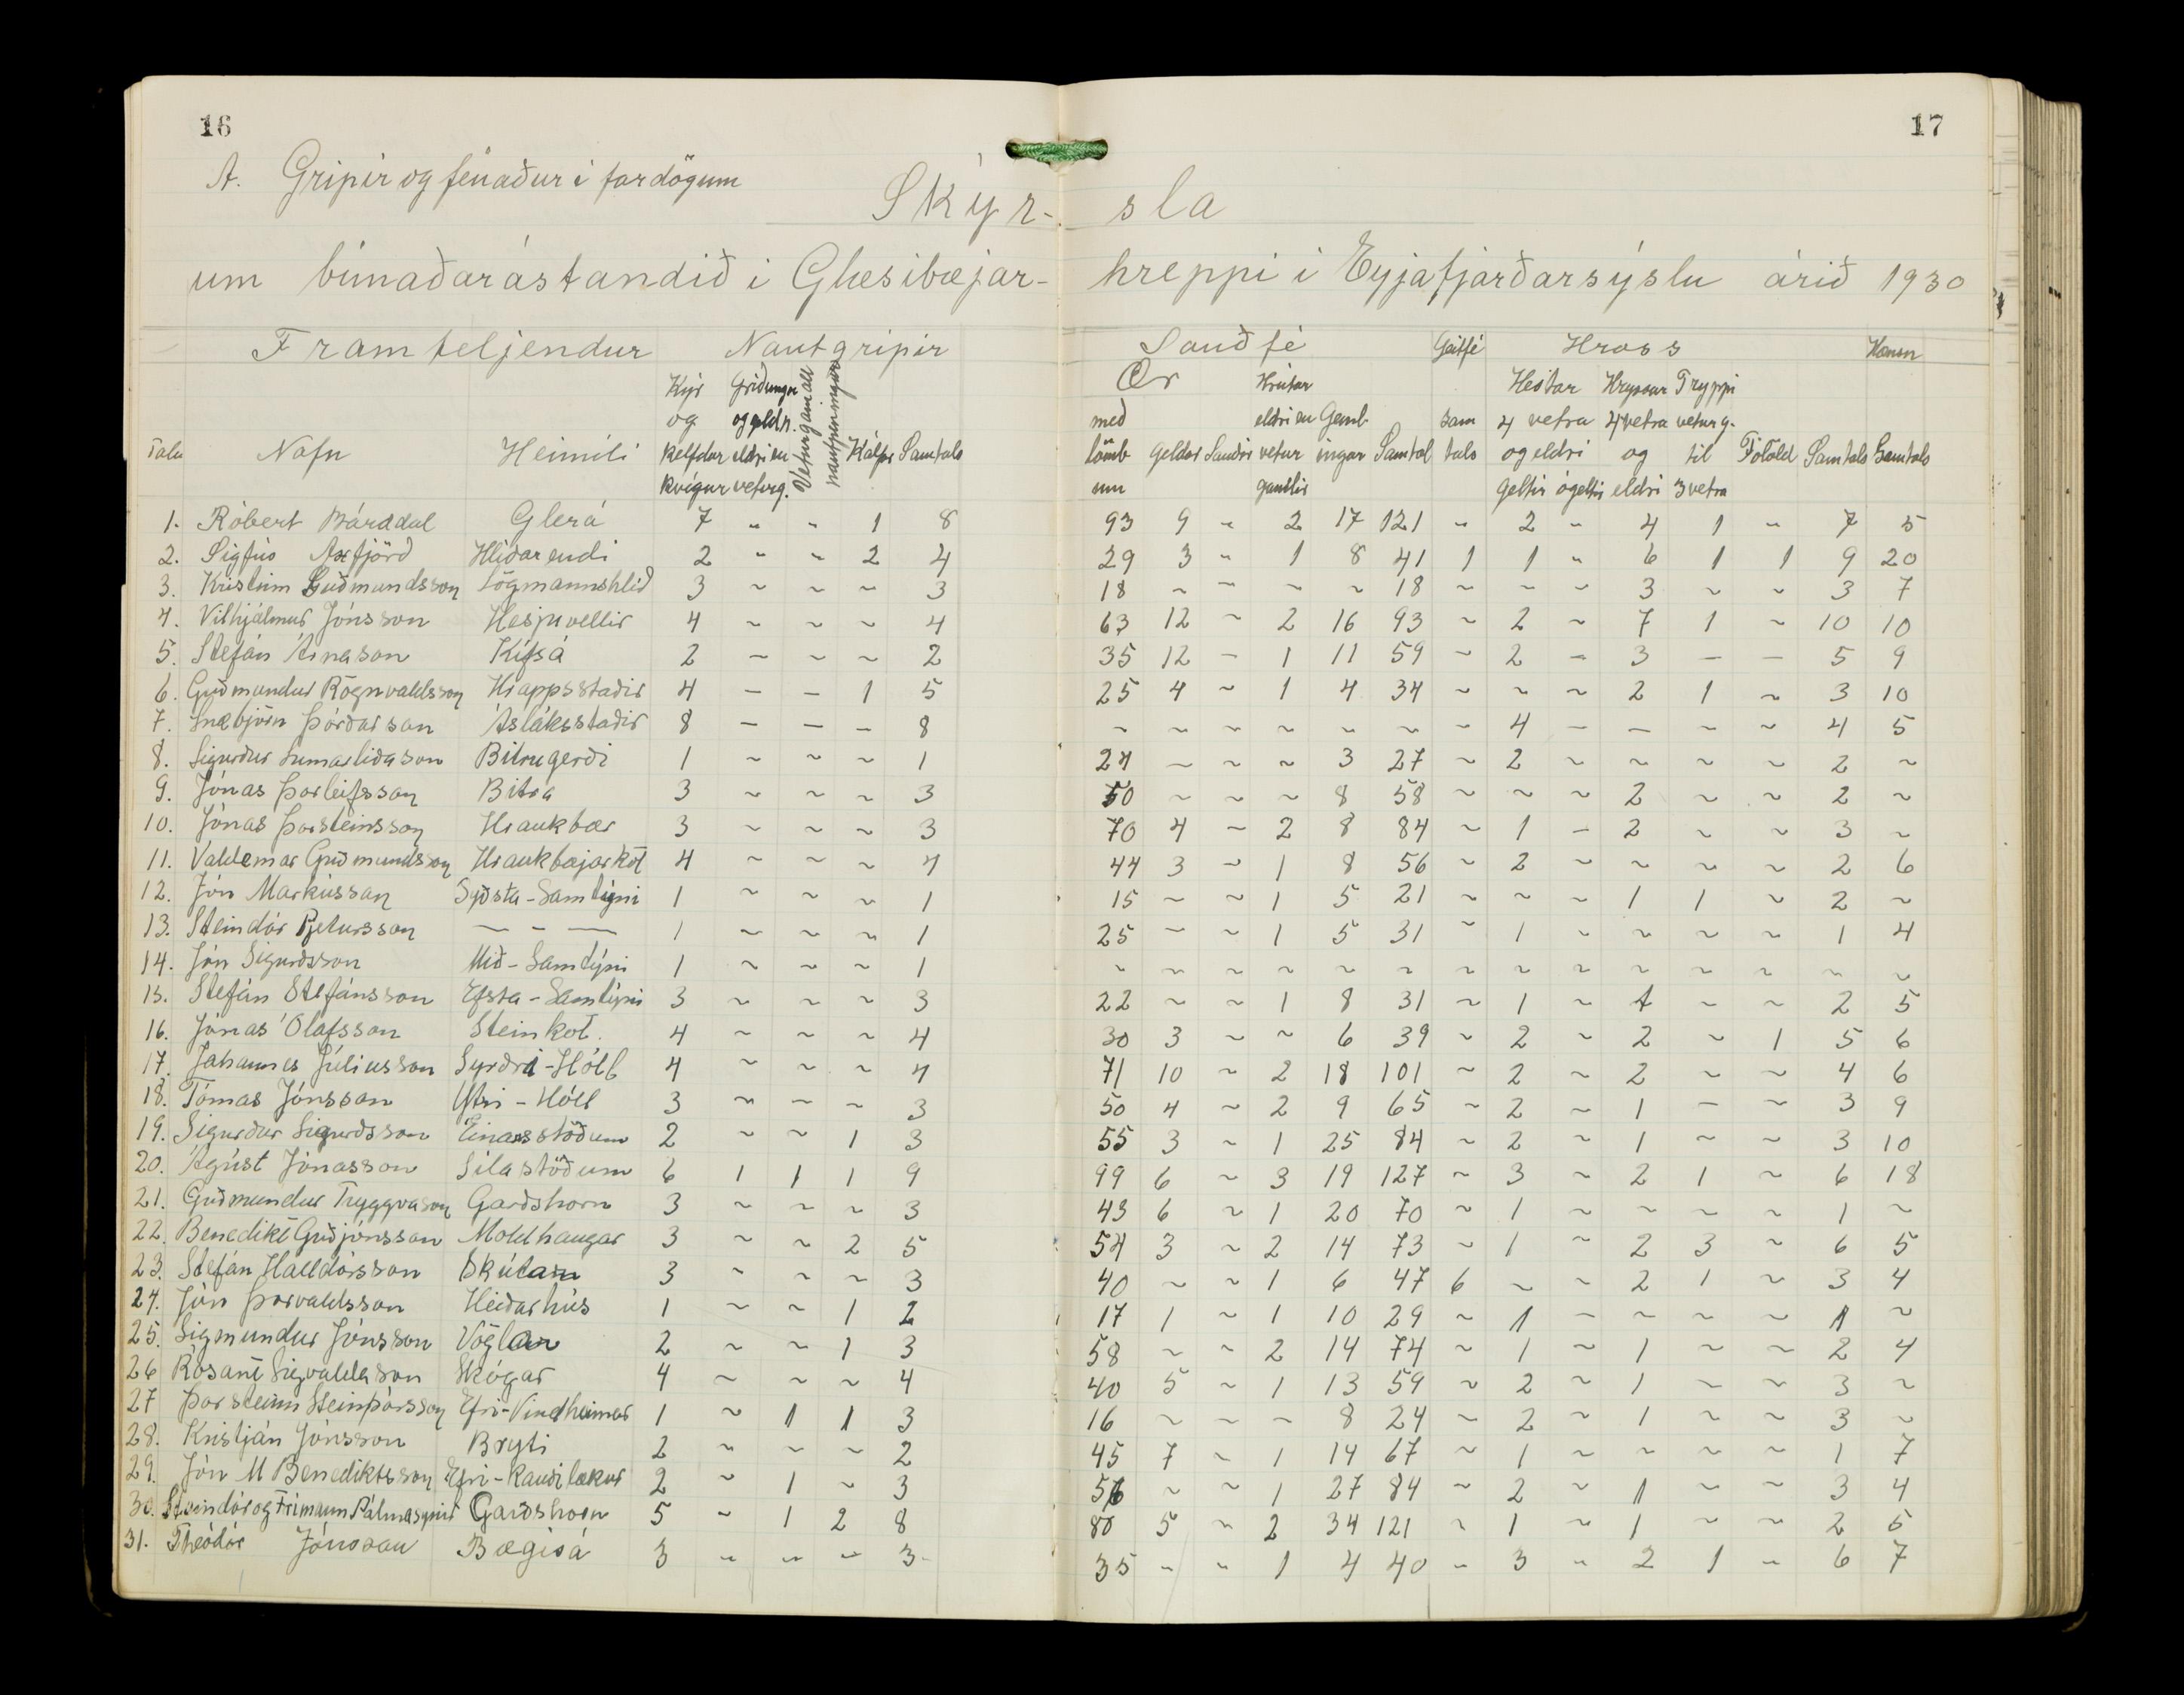 16
17
A. Gripir og fénaður í fardögum
Skýr- sla
um búnaðarástandið í Glæsibæjar- hreppi í Eyjafjarðarsýslu árið 1930
Framteljendur Nautgripir Sauðfé Geitfé Hross Hænsn
Tala Nafn Heimili Kýr og kelfdar kvígur Griðungar og geldn. eldri en veturg. Veturgamall nautpeningur Kálfar Samtals Ær með lömbum Geldar Sauðir Hrútar eldri en vetur gamlir Gemlingar Samtal Samtals Hestar 4 vetra og eldri geltir ógeltir Hryssur 4 vetra og eldri Tryppi veturg. til 3 vetra Folöld Samtals Samtals
1. Róbert Bárðdal Glerá 7 " " 1 8 93 9 " 2 17 121 " 2 " 4 1 " 7 5
2. Sigfús Axfjörð Hlíðarendi 2 " " 2 4 29 3 " 1 8 41 1 1 " 6 1 1 9 20
3. Kristinn Guðmundsson Lögmannshlíð 3 ~ ~ ~ 3 18 ~ ~ ~ ~ 18 ~ ~ ~ 3 ~ ~ 3 7
4. Vilhjálmur Jónsson Hesjuvellir 4 ~ ~ ~ 4 63 12 ~ 2 16 93 ~ 2 ~ 7 1 ~ 10 10
5. Stefán Árnason Kífsá 2 ~ ~ ~ 2 35 12 - 1 11 59 ~ 2 - 3 - - 5 9
6. Guðmundur Rögnvaldsson Hrappsstaðir 4 - - 1 5 25 4 ~ 1 4 34 ~ ~ ~ 2 1 ~ 3 10
7. Snæbjörn Þórðarson Ásláksstaðir 8 - - - 8 ~ ~ ~ ~ ~ ~ ~ 4 - - ~ ~ 4 5
8. Sigurður Sumarliðason Bitrugerði 1 ~ ~ ~ 1 24 ~ ~ ~ 3 27 ~ 2 ~ ~ ~ ~ 2 ~
9. Jónas Þorleifsson Bitra 3 ~ ~ ~ 3 50 ~ ~ ~ 8 58 ~ ~ ~ 2 ~ ~ 2 ~
10. Jónas Þorsteinsson Hraukbær 3 ~ ~ ~ 3 70 4 ~ 2 8 84 ~ 1 - 2 ~ ~ 3 ~
11. Valdemar Guðmundsson Hraukbæjarkot 4 ~ ~ ~ 4 44 3 ~ 1 8 56 ~ 2 ~ ~ ~ ~ 2 6
12. Jón Markússon Syðsta-Samtýni 1 ~ ~ ~ 1 15 ~ ~ 1 5 21 ~ ~ ~ 1 1 ~ 2 ~
13. Steindór Pjetursson — - — 1 ~ ~ ~ 1 25 ~ ~ 1 5 31 ~ 1 ~ ~ ~ ~ 1 4
14. Jón Sigurðsson Mið-Samtýni 1 ~ ~ ~ 1 ~ ~ ~ ~ ~ ~ ~ ~ ~ ~ ~ ~ ~ ~
15. Stefán Stefánsson Efsta-Samtýni 3 ~ ~ ~ 3 22 ~ ~ 1 8 31 ~ 1 ~ 1 ~ ~ 2 5
16. Jónas Ólafsson Steinkot. 4 ~ ~ ~ 4 30 3 ~ ~ 6 39 ~ 2 ~ 2 ~ 1 5 6
17. Jóhannes Júlíusson Syðri-Hóll 4 ~ ~ ~ 4 71 10 ~ 2 18 101 ~ 2 ~ 2 ~ ~ 4 6
18. Tómas Jónsson Ytri-Hóll 3 ~ ~ ~ 3 50 4 ~ 2 9 65 ~ 2 ~ 1 ~ ~ 3 9
19. Sigurður Sigurðsson Einarsstöðum 2 ~ ~ 1 3 55 3 ~ 1 25 84 ~ 2 ~ 1 ~ ~ 3 10
20. Ágúst Jónasson Sílastöðum 6 1 1 1 9 99 6 ~ 3 19 127 ~ 3 ~ 2 1 ~ 6 18
21. Guðmundur Tryggvason Garðshorn 3 ~ ~ ~ 3 43 6 ~ 1 20 70 ~ 1 ~ ~ ~ ~ 1 ~
22. Benedikt Guðjónsson Moldhaugar 3 ~ ~ 2 5 54 3 ~ 2 14 73 ~ 1 ~ 2 3 ~ 6 5
23. Stefán Halldórsson Skútar 3 ~ ~ ~ 3 40 ~ ~ 1 6 47 6 ~ ~ 2 1 ~ 3 4
24. Jón Þorvaldsson Heiðarhús 1 ~ ~ 1 2 17 1 ~ 1 10 29 ~ 1 ~ ~ ~ ~ 1 ~
25. Sigmundur Jónsson Vöglar 2 ~ ~ 1 3 58 ~ ~ 2 14 74 ~ 1 ~ 1 ~ ~ 2 4
26 Rósant Sigvaldason Skógar 4 ~ ~ ~ 4 40 5 ~ 1 13 59 ~ 2 ~ 1 ~ ~ 3 ~
27 Þorsteinn Steinþórsson Efri-Vindheimar 1 ~ 1 1 3 16 ~ ~ ~ 8 24 ~ 2 ~ 1 ~ ~ 3 ~
28. Kristján Jónsson Bryti 2 ~ ~ ~ 2 45 7 ~ 1 14 67 ~ 1 ~ ~ ~ ~ 1 7
29. Jón M Benediktsson Efri-Rauðilækur 2 ~ 1 ~ 3 56 ~ ~ 1 27 84 ~ 2 ~ 1 ~ ~ 3 4
30. Steindór og Frímann Pálmasynir Garðshorn 5 ~ 1 2 8 80 5 ~ 2 34 121 ~ 1 ~ 1 ~ ~ 2 5
31. Theódór Jónsson Bægisá 3 ~ ~ ~ 3 35 ~ ~ 1 4 40 ~ 3 ~ 2 1 ~ 6 7